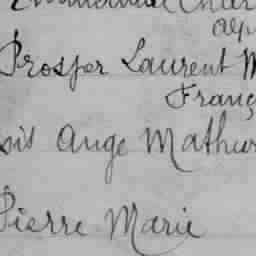 Prosper Laurent M
Franç
ois Ange Mathur
Pierre Marie